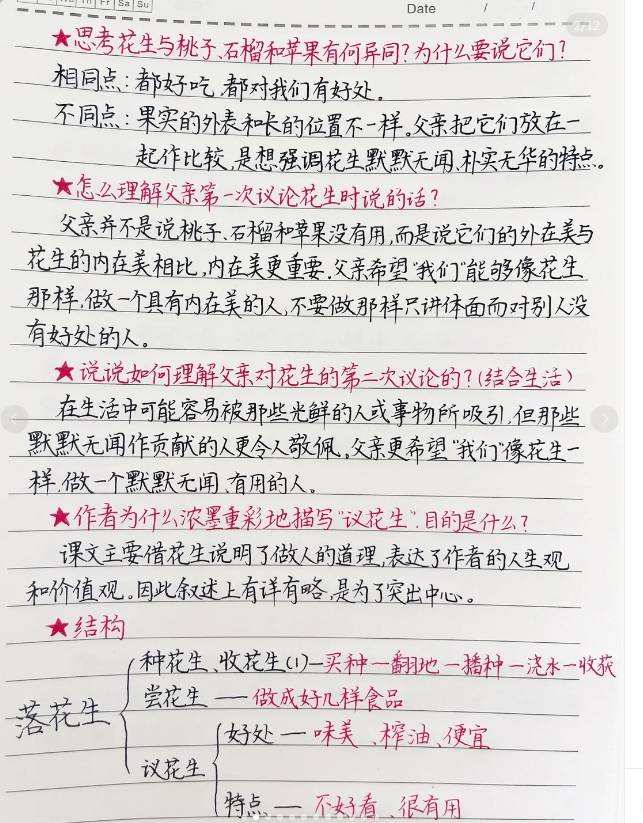 Th Fr Sa Su
Date / /
2/12
★思考花生与桃子、石榴和苹果有何异同?为什么要说它们?
相同点:都好吃,都对我们有好处。
不同点:果实的外表和长的位置不一样。父亲把它们放在一
起作比较,是想强调花生默默无闻、朴实无华的特点。
★怎么理解父亲第一次议论花生时说的话?
父亲并不是说桃子、石榴和苹果没有用,而是说它们的外在美与
花生的内在美相比,内在美更重要.父亲希望“我们”能够像花生
那样,做一个具有内在美的人,不要做那样只讲体面而对别人没
有好处的人。
★说说如何理解父亲对花生的第二次议论的?(结合生活)
在生活中可能容易被那些光鲜的人或事物所吸引,但那些
默默无闻作贡献的人更令人敬佩。父亲更希望“我们”像花生一
样,做一个默默无闻、有用的人。
★作者为什么浓墨重彩地描写“议花生”.目的是什么?
课文主要借花生说明了做人的道理,表达了作者的人生观
和价值观。因此叙述上有详有略,是为了突出中心。
★结构
种花生、收花生(1)—买种—翻地—播种—浇水—收获
落花生 尝花生——做成好几样食品
好处—味美、榨油、便宜
议花生
特点—不好看、很有用